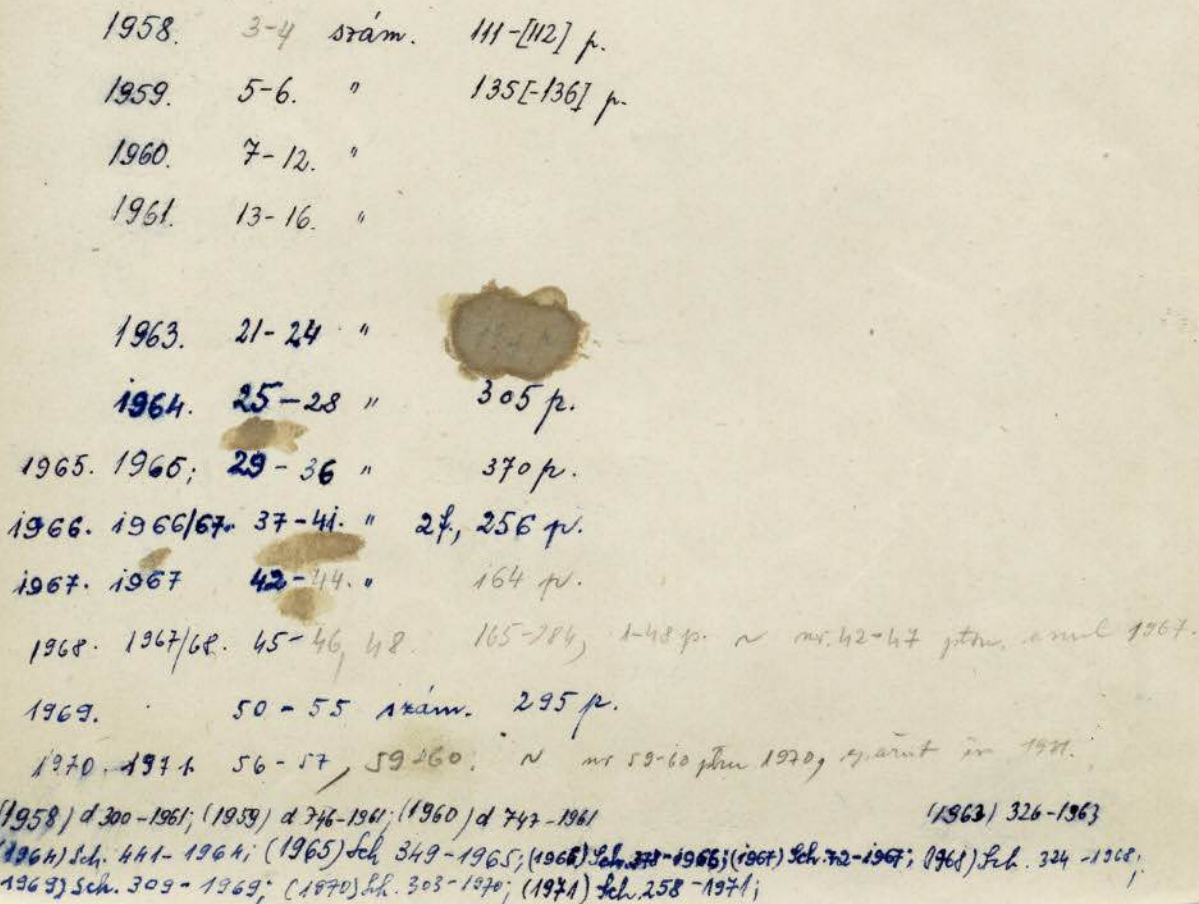 1958. 3-4 szám. 111-[112] p.
1959. 5-6. " 135[-136] p.
1960. 7-12. "
1961. 13-16. "
1963. 21-24 "
1964. 25-28 " 305 p.
1965. 1965; 29-36 " 370 p.
1966. 1966/67. 37-41. " 2f., 256 p.
1967. 1967 42-44. " 164 p.
1968. 1967/68. 45-46, 48. 165-284, 1-48 p. ~ nr. 42-47 ptru. anul 1967.
1969. 50-55 szám. 295 p.
1970. 1971. 56-57, 59-60. ~ nr 59-60 ptru 1970, apărut în 1971.
(1958) d 300-1961; (1959) d 746-1961; (1960) d 747-1961 (1963) 326-1963
(1964) Sch. 441-1964; (1965) Sch 349-1965; (1966) Sch. 378-1966; (1967) Sch. 72-1967; (1968) Sch. 324-1968;
1969) Sch. 309-1969; (1970) Sch. 303-1970; (1971) Sch. 258-1971;